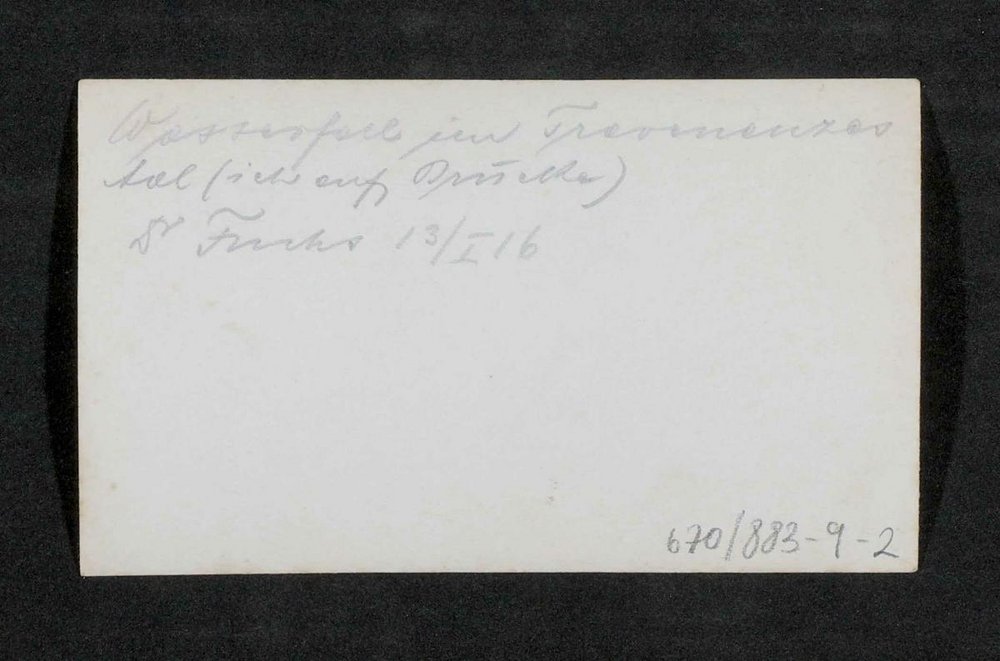 Wasserfall im Travenanzes
tal (ich auf Brücke)
Dr Fuchs 13/I 16
670/883-9-2